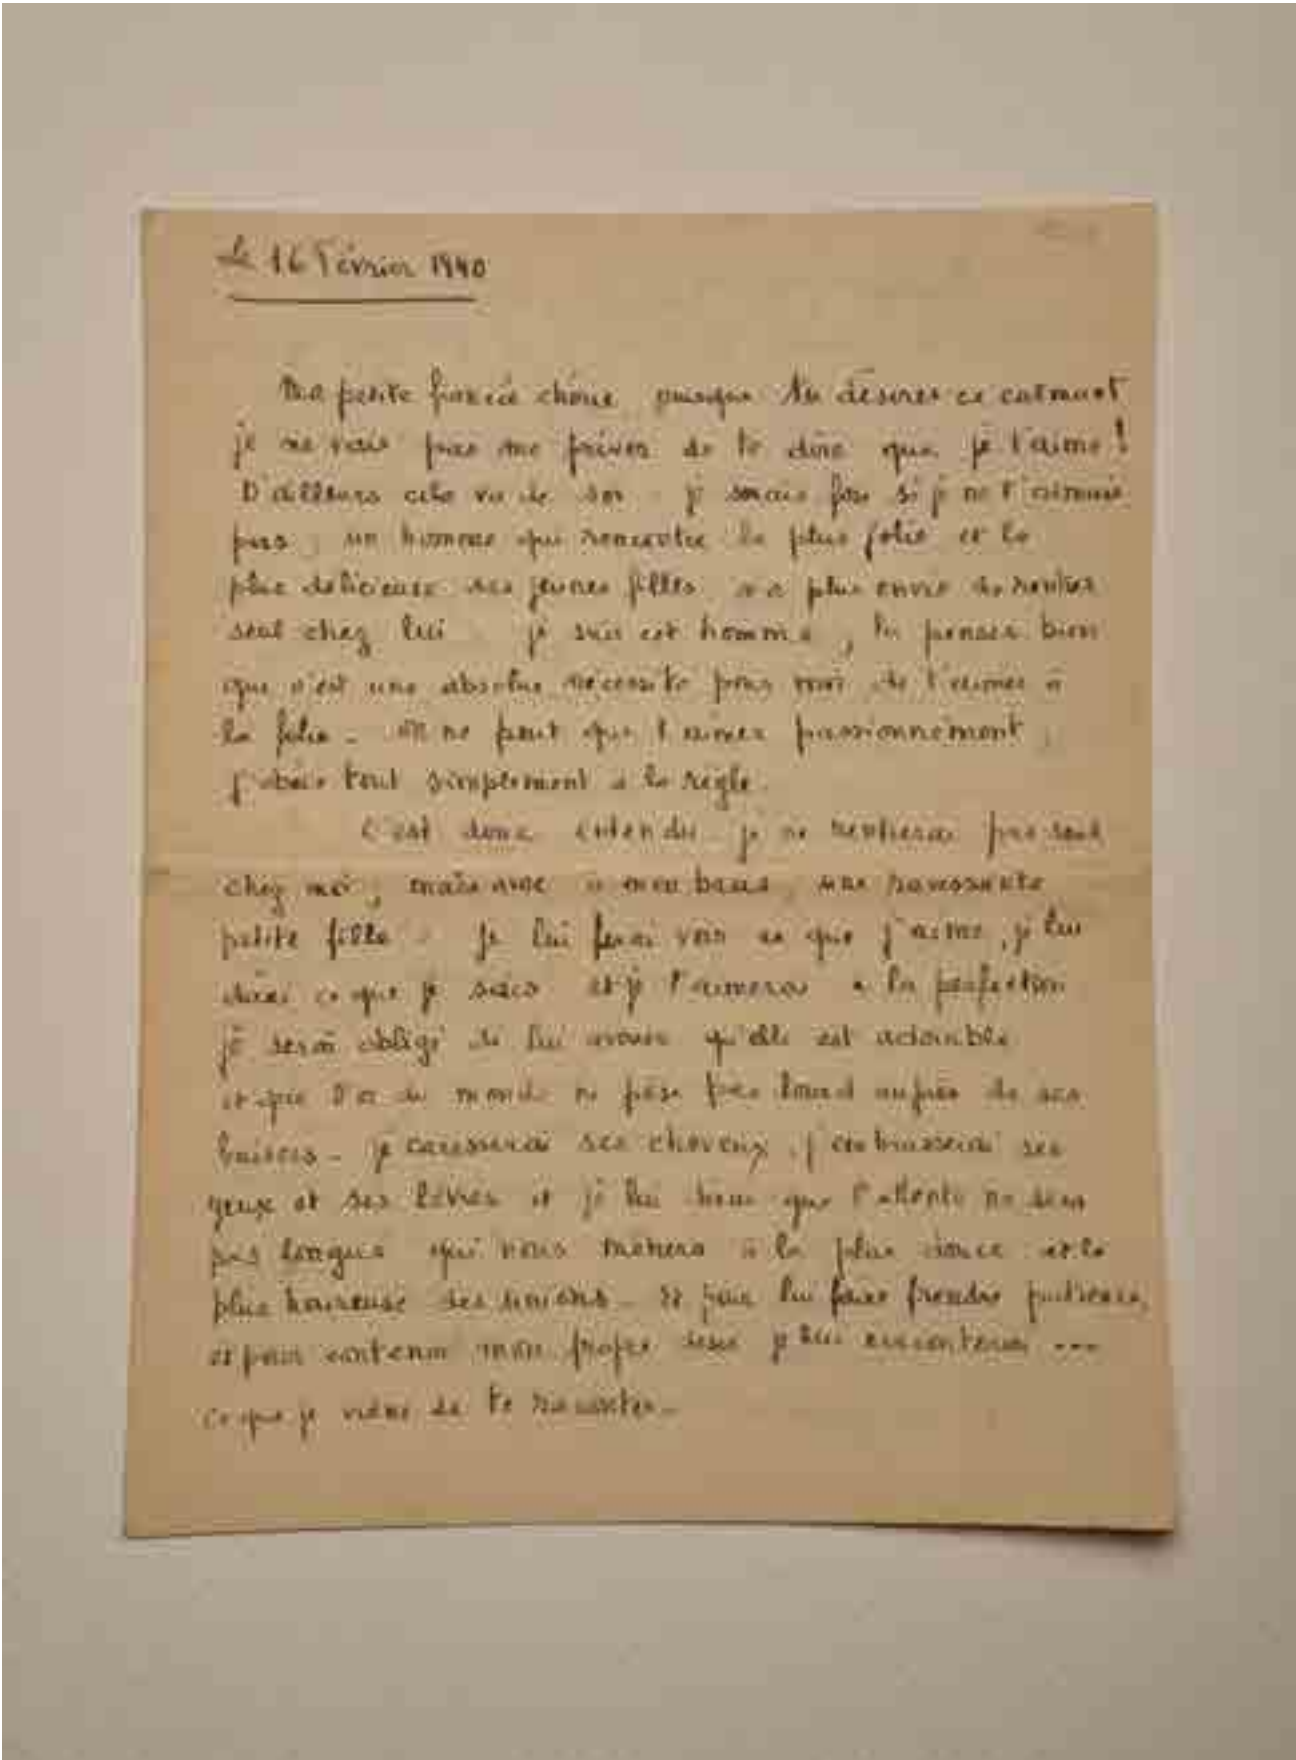 le 16 Février 1940
Ma petite fiancée chérie, puisque tu désires ce calmant
je ne vais pas me priver de te dire que je t'aime !
D'ailleurs cela va de soi - je serais fou si je ne t'aimais
pas ; un homme qui rencontre la plus jolie et la
plus délicieuse des jeunes filles n'a plus envie de rentrer
seul chez lui - je suis cet homme, tu penses bien
que c'est une absolue nécessité pour moi de t'aimer à
la folie - On ne peut que t'aimer passionnément ;
j'obéis tout simplement à la règle.
C'est donc entendu je ne rentrerai pas seul
chez moi, mais avec à mon bras, une ravissante
petite fille - Je lui ferai voir ce que j'aime, je lui
dirai ce que je sais et je l'aimerai à la perfection
je serai obligé de lui avouer qu'elle est adorable
et que l'or du monde ne pèse pas lourd auprès de ses
baisers - je caresserai ses cheveux, j'embrasserai ses
yeux et ses lèvres et je lui dirai que l'attente ne sera
pas longue qui nous mènera à la plus douce et la
plus heureuse des unions - Et pour lui faire prendre patience,
et pour contenir mon propre désir je lui raconterai ...
ce que je viens de te raconter -